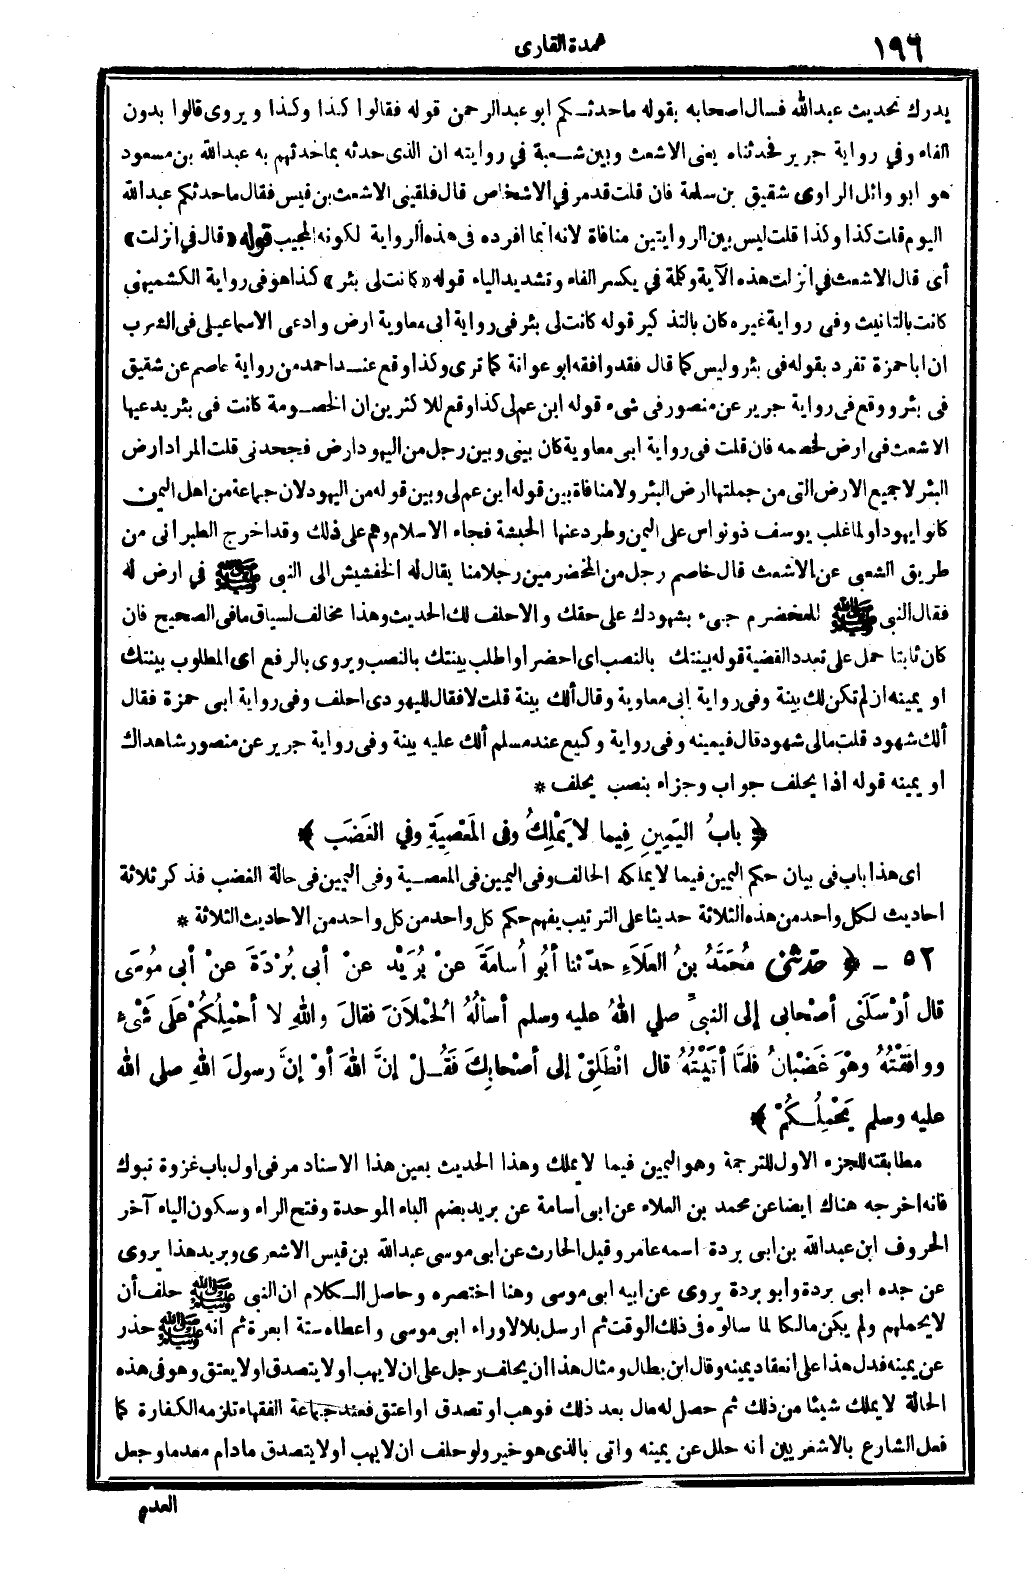 ١٩٦
عمدة القارى
يدرك تحديث عبدالله فسال اصحابه بقوله ماحدثكم ابو عبدالرحمن قوله فقالوا كذا وكذا ويروى قالوا بدون
الفاء وفي رواية جرير فحدثناه يعنى الاشعث وبين شعبة في روايته ان الذى حدثه بما حدثهم به عبدالله بن مسعود
هو ابو وائل الراوى شقيق بن سلمة فان قلت قد مر في الاشخاص قال فلقينى الاشعث بن قيس فقال ماحدثكم عبدالله
اليوم قلت كذا وكذا قلت ليس بين الروايتين منافاة لانه انما افرده فى هذه الرواية لكونه المجيب قوله «قال في انزلت»
أى قال الاشعث في انزلت هذه الآية وكلمة في بكسر الفاء وتشديد الياء قوله «كانت لى بئر» كذا هو فى رواية الكشميهنى
كانت بالتانيث وفى رواية غيره كان بالتذكير قوله كانت لى بئر فى رواية أبى معاوية ارض وادعى الاسماعيلى فى الشرب
ان اباحمزة تفرد بقوله فى بئر وليس كما قال فقد وافقه ابو عوانة كما ترى وكذا وقع عند احمد من رواية عاصم عن شقيق
فى بئر ووقع فى رواية جرير عن منصور فى شىء قوله ابن عم لى كذا وقع للاكثرين ان الخصومة كانت فى بئر يدعيها
الاشعث فى ارض لخصمه فان قلت فى رواية ابى معاوية كان بينى وبين رجل من اليهود ارض فجحدنى قلت المراد ارض
البئر لا جميع الارض التى من جملتها ارض البئر ولا منافاة بين قوله ابن عم لى وبين قوله من اليهود لان جماعة من اهل اليمن
كانوا يهودا ولما غلب يوسف ذو نواس على اليمن وطرد عنها الحبشة فجاء الاسلام وهم على ذلك وقد اخرج الطبرانى من
طريق الشعبى عن الاشعث قال خاصم رجل من الحضرميين رجلا منا يقال له الخفشيش الى النبى ﷺ في ارض له
فقال النبى ﷺ للحضرم جىء بشهودك على حقك والا حلف لك الحديث وهذا مخالف لسياق مافى الصحيح فان
كان ثابتا حمل على تعدد القضية قوله بينتك بالنصب اى احضر او اطلب بينتك بالنصب ويروى بالرفع اى المطلوب بينتك
او يمينه ان لم تكن لك بينة وفى رواية ابى معاوية وقال ألك بينة قلت لا فقال لليهودى احلف وفى رواية ابى حمزة فقال
ألك شهود قلت مالى شهود قال فيمينه وفى رواية وكيع عند مسلم ألك عليه بينة وفى رواية جرير عن منصور شاهداك
او يمينه قوله اذا يحلف جواب وجزاء بنصب يحلف *
﴿ بابُ اليَمِينِ فِيما لا يَمْلِكُ وفى المَعْصِيَةِ وفي الغَضَب ﴾
اى هذا باب فى بيان حكم اليمين فيما لا يملكه الحالف وفى اليمين فى المعصية وفى اليمين فى حالة الغضب فذكر ثلاثة
احاديث لكل واحد من هذه الثلاثة حديثا على الترتيب يفهم حكم كل واحد من كل واحد من الاحاديث الثلاثة *
٥٢ - ﴿ حدثنى مُحَمَّدُ بنُ العَلَاءِ حدّثنا أبُو أُسامَةَ عنْ بُرَيْدٍ عنْ أبى بُرْدَةَ عنْ أبى مُوسَى
قال أرْسَلَنى أصْحابى إلى النبىّ صلي اللهُ عليه وسلم أسْألُهُ الحُمْلَانَ فقالَ واللهِ لا أحْمِلُكُمْ عَلَى شَىْءٍ
ووافَقْتُهُ وهْوَ غَضْبانُ فلَمَّا أتَيْتُهُ قال انْطَلِقْ إلى أصْحابِكَ فَقُلْ إنَّ اللهَ أوْ إنَّ رسولَ اللهِ صلى الله
عليه وسلم يَحْمِلُكُمْ ﴾
مطابقته للجزء الاول للترجمة وهو اليمين فيما لا يملك وهذا الحديث بعين هذا الاسناد مر فى اول باب غزوة تبوك
فانه اخرجه هناك ايضا عن محمد بن العلاء عن ابى اسامة عن بريد بضم الباء الموحدة وفتح الراء وسكون الياء آخر
الحروف ابن عبدالله بن ابى بردة اسمه عامر وقيل الحارث عن ابى موسى عبدالله بن قيس الاشعرى وبريد هذا يروى
عن جده ابى بردة وابو بردة يروى عن ابيه ابى موسى وهنا اختصره وحاصل الكلام ان النبى ﷺ حلف أن
لا يحملهم ولم يكن مالكا لما سالوه فى ذلك الوقت ثم ارسل بلالا وراء ابى موسى واعطاه ستة ابعرة ثم انه ﷺ حذر
عن يمينه فدل هذا على انعقاد يمينه وقال ابن بطال ومثال هذا أن يحلف رجل على ان لا يهب او لا يتصدق او لا يعتق وهو فى هذه
الحالة لا يملك شيئا من ذلك ثم حصل له مال بعد ذلك فوهب او تصدق او اعتق فعند جماعة الفقهاء تلزمه الكفارة كما
فعل الشارع بالاشعريين أنه حلل عن يمينه واتى بالذى هو خير ولو حلف ان لا يهب او لا يتصدق مادام معدما وجعل
العدم